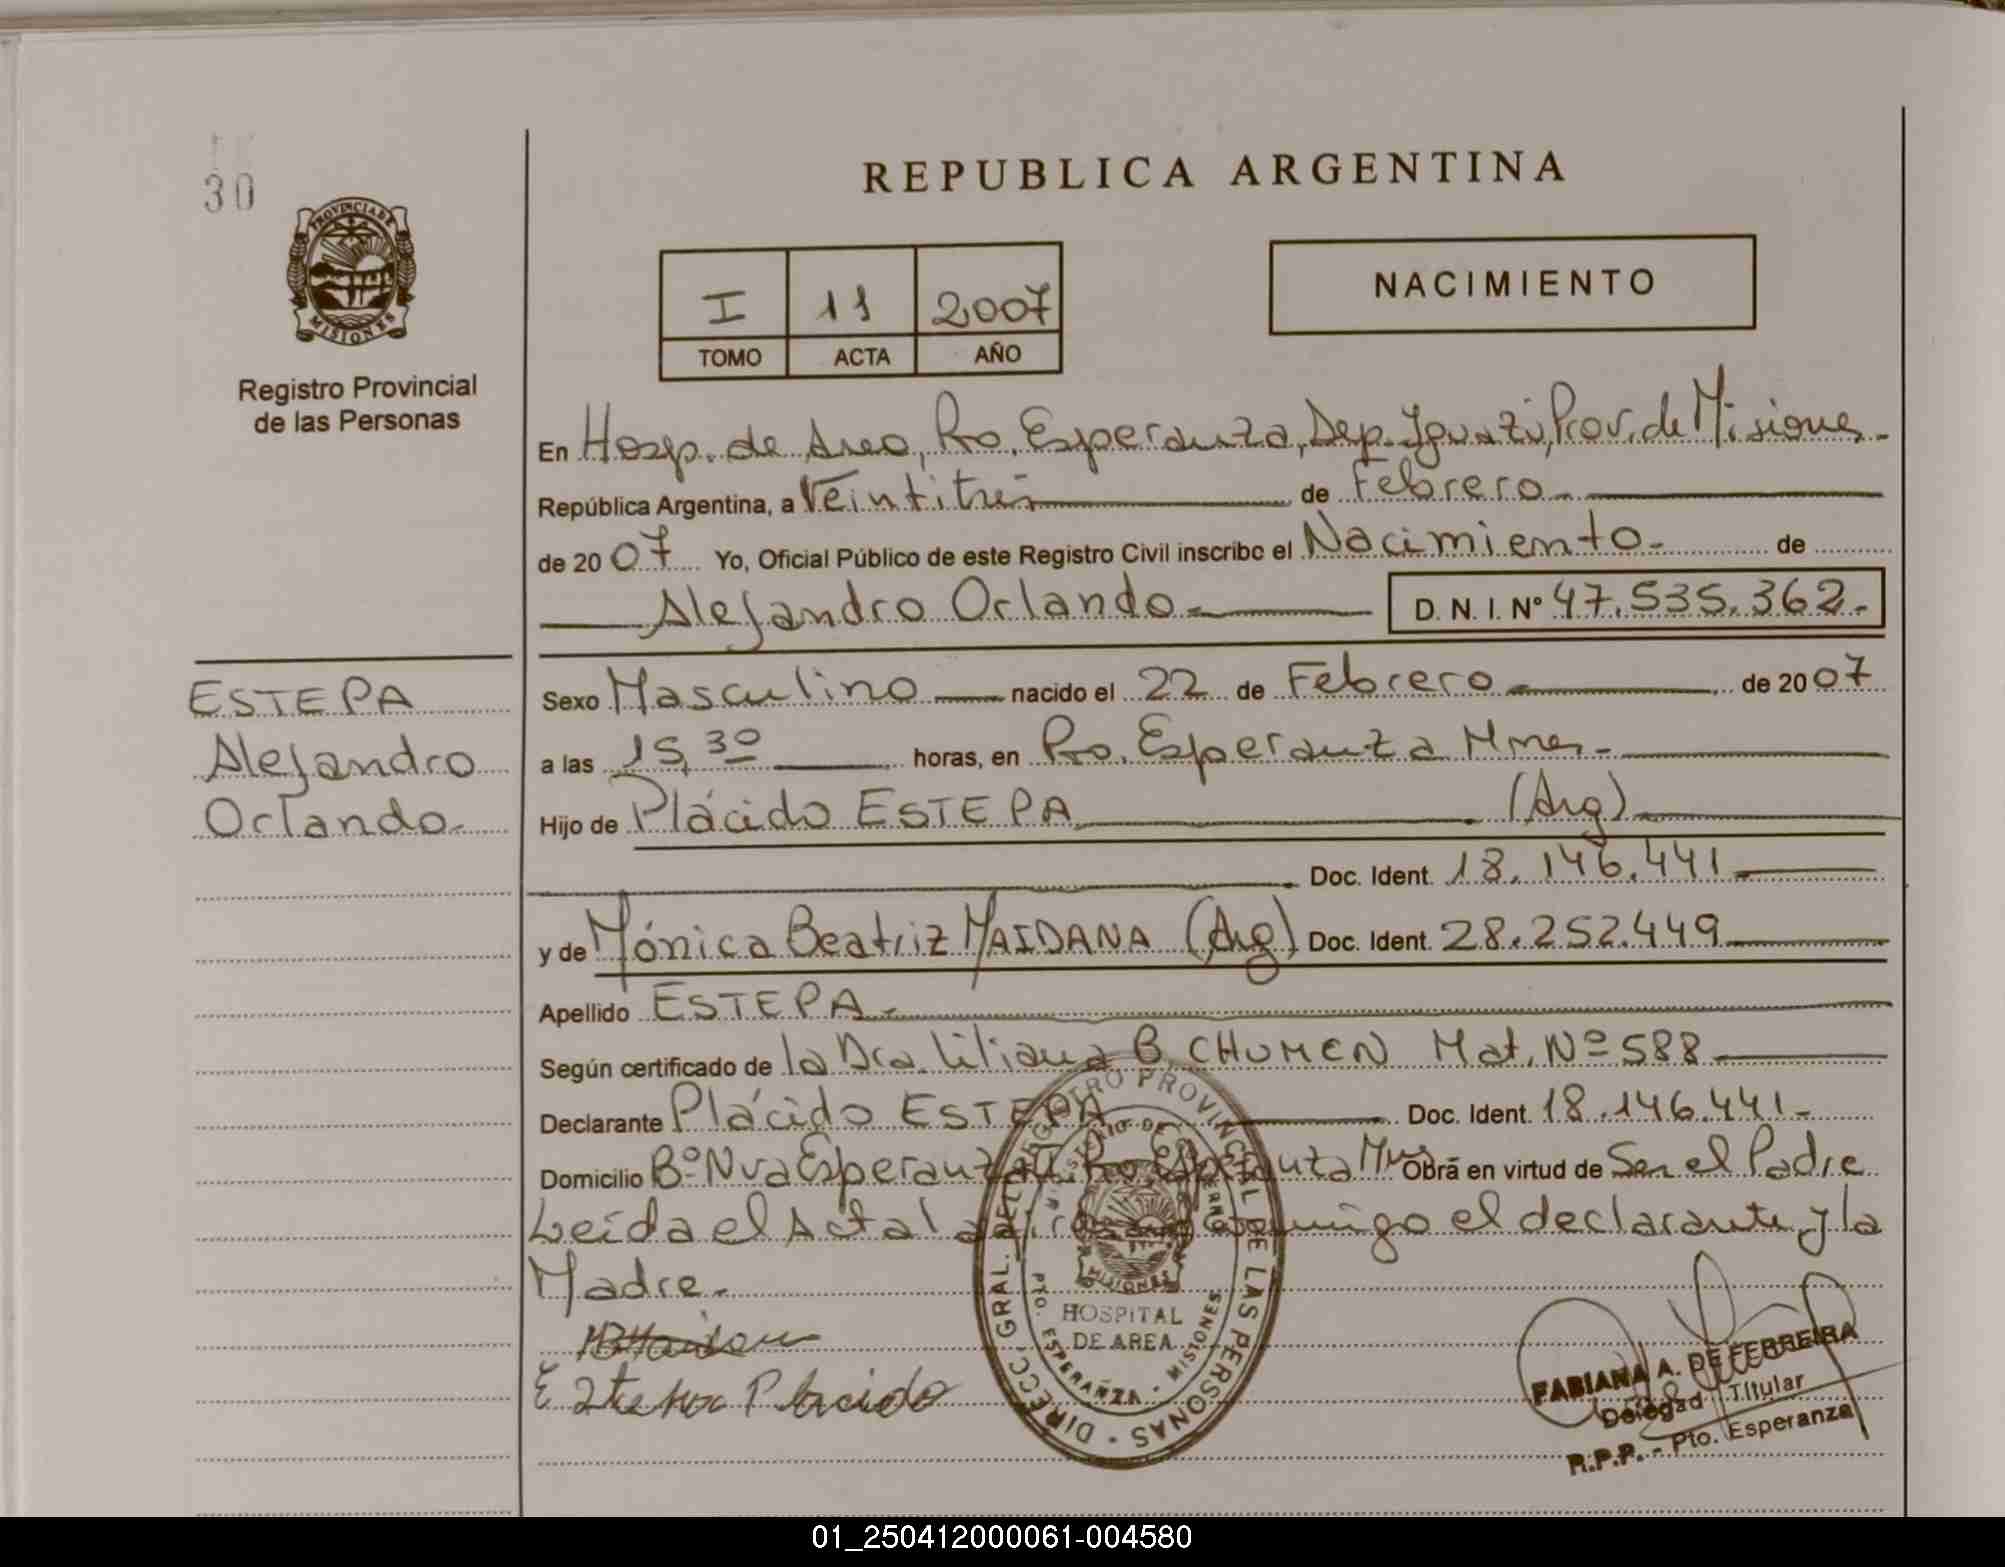 30
PROVINCIA DE
MISIONES
Registro Provincial
de las Personas
REPUBLICA ARGENTINA
I 11 2007
TOMO ACTA AÑO
NACIMIENTO
En Hosp. de Area, Pto. Esperanza, Dep. Iguazú, Prov. de Misiones.-
República Argentina, a Veintitrés de Febrero.-
de 2007 Yo, Oficial Público de este Registro Civil inscribo el Nacimiento.- de
Alejandro Orlando.- D. N. I. Nº 47.535.362.-
ESTEPA
Alejandro
Orlando.-
Sexo Masculino nacido el 22 de Febrero.- de 2007
a las 15,30 horas, en Pto. Esperanza Mnes.-
Hijo de Plácido ESTEPA (Arg)
Doc. Ident. 18.146.441
y de Mónica Beatriz MAIDANA (Arg) Doc. Ident. 28.252.449
Apellido ESTEPA.-
Según certificado de la Dra. Liliana B CHUMEN Mat. Nº 588
Declarante Plácido ESTEPA Doc. Ident. 18.146.441.-
Domicilio Bº Nva Esperanza Pto. Esperanza Mnes Obra en virtud de Ser el Padre
Leída el Acta la conmigo el declarante y la
Madre.-
Plácido
DIRECC. GRAL. DEL REGISTRO PROVINCIAL DE LAS PERSONAS
MINISTERIO DE GOBIERNO
MISIONES
HOSPITAL
DE AREA
PTO. ESPERANZA - MISIONES
FABIANA A. DE FERREIRA
Delegad Titular
R.P.P. - Pto. Esperanza
01_250412000061-004580